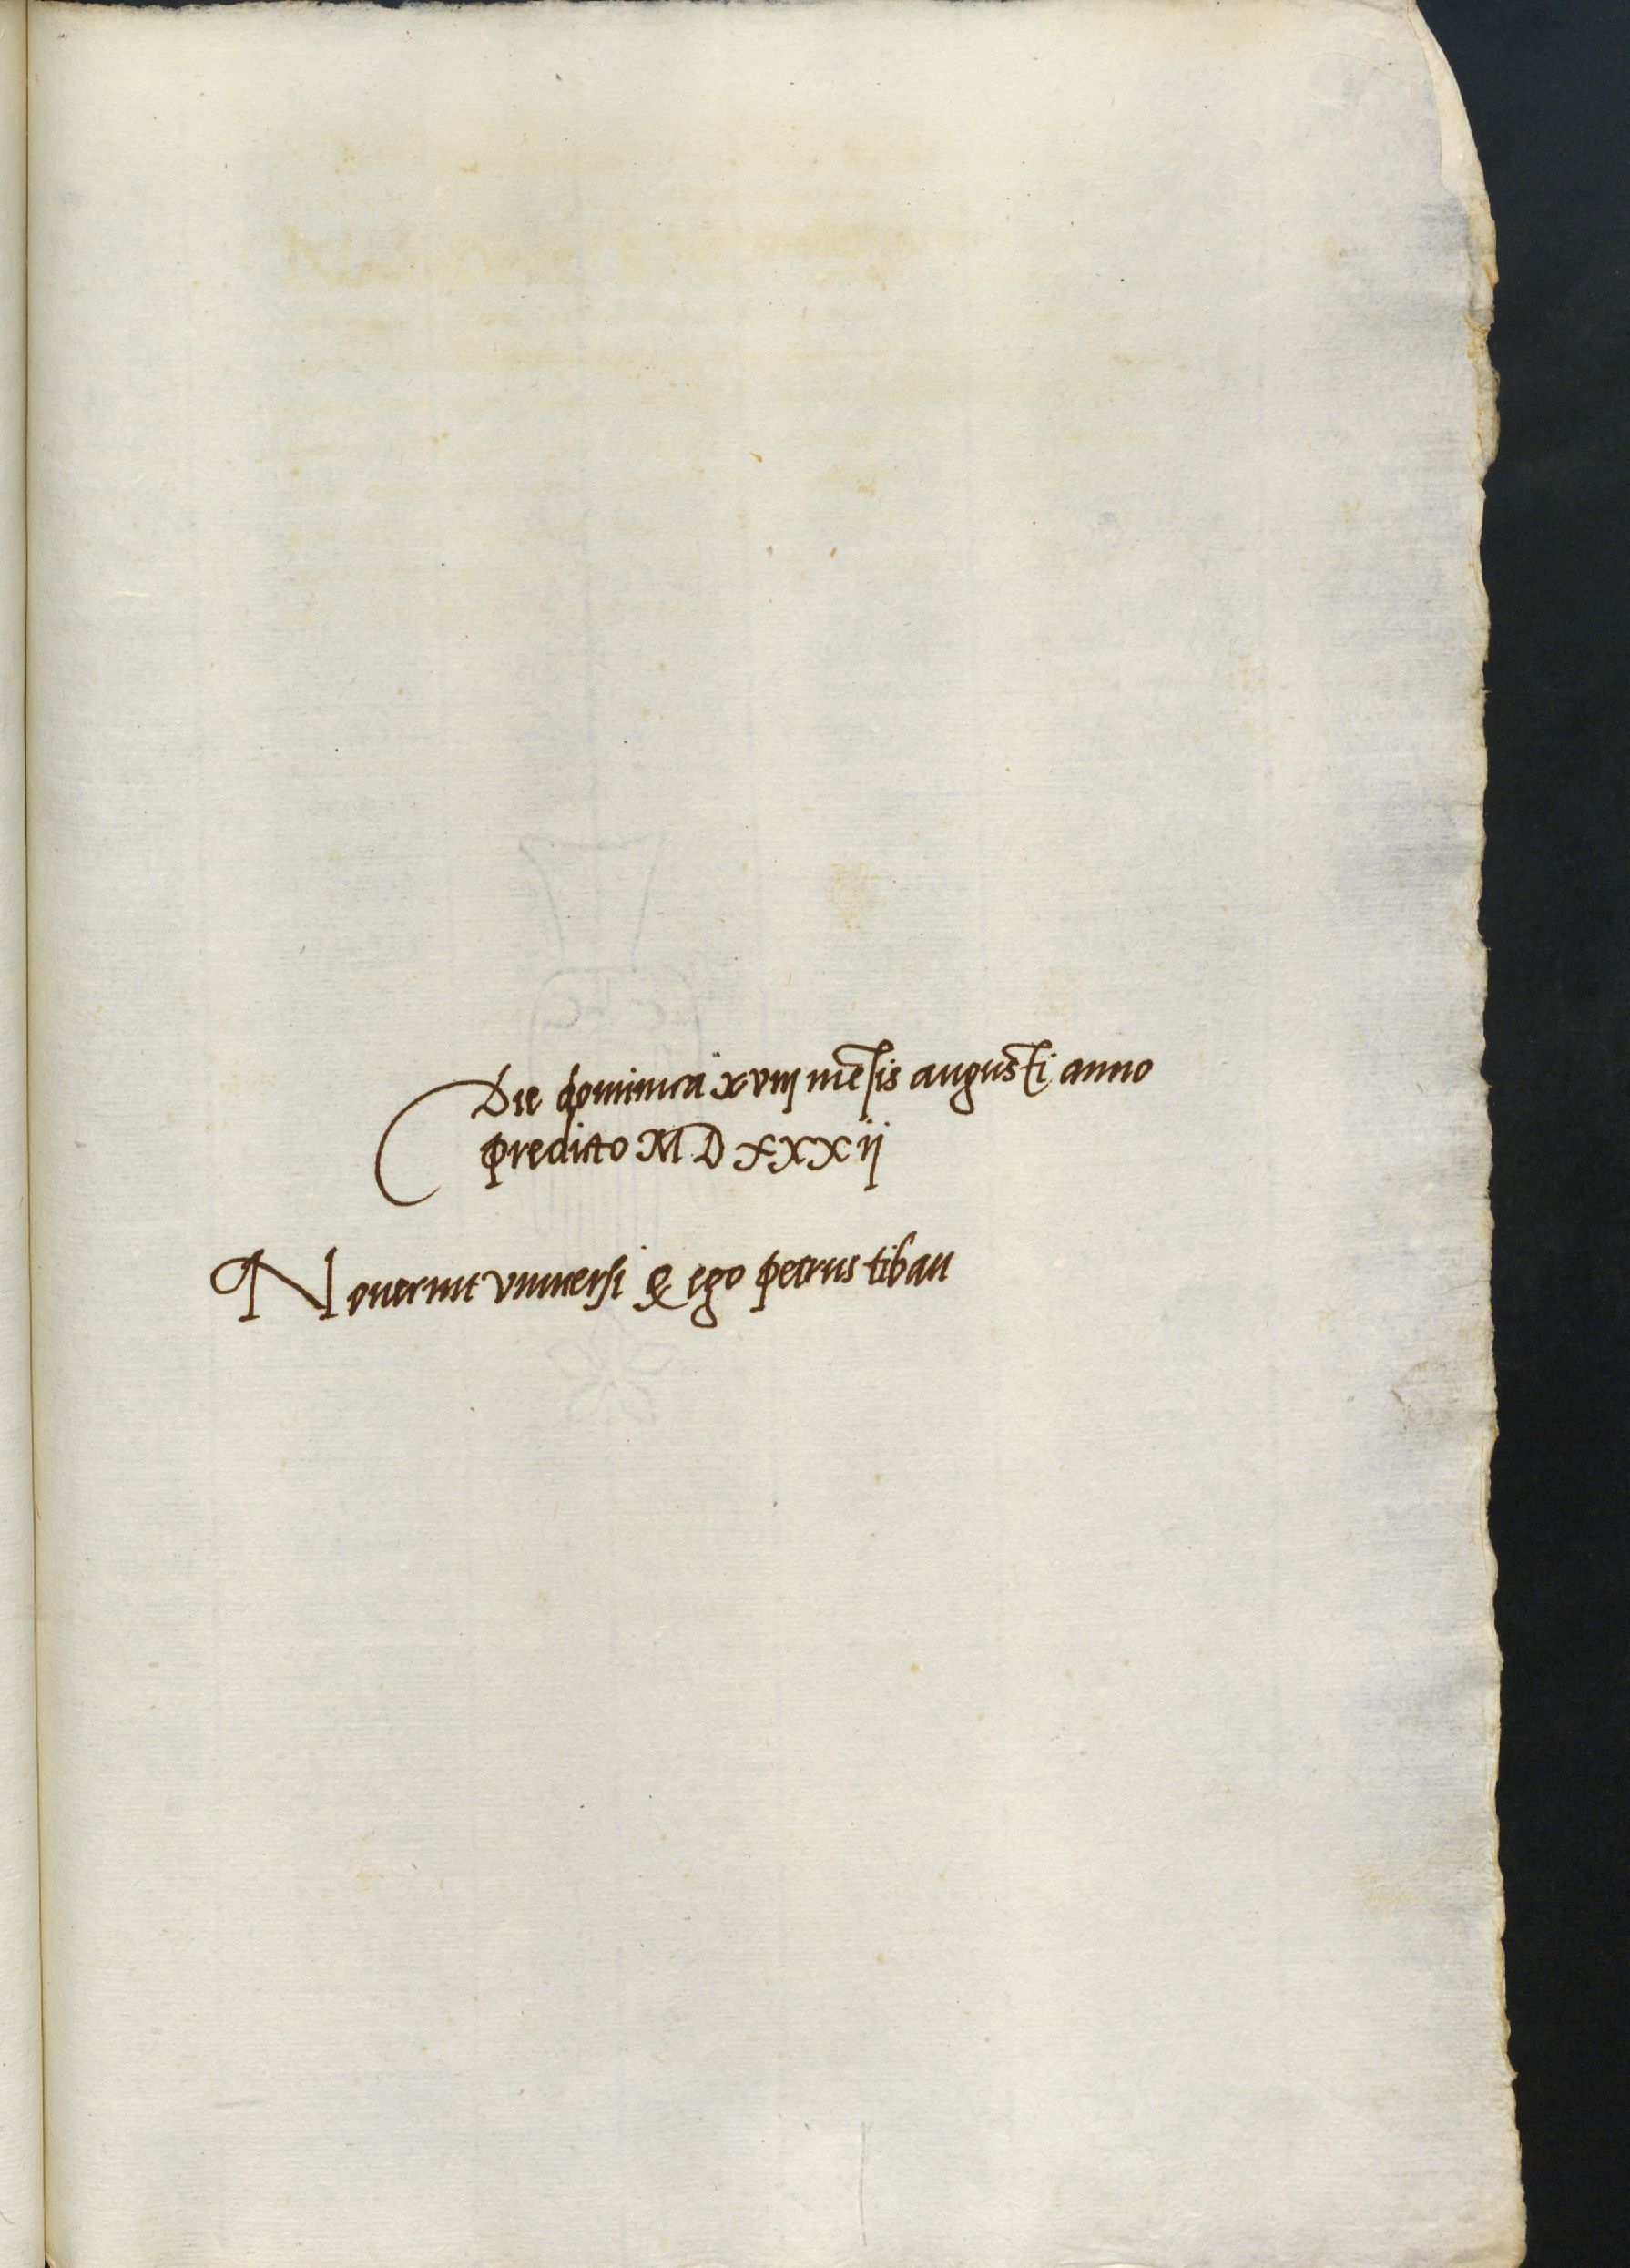 Die dominica xviij mẽsis augusti anno
predicto M D xxxij
Nouerint vniuersi q̃ ego petrus tibau